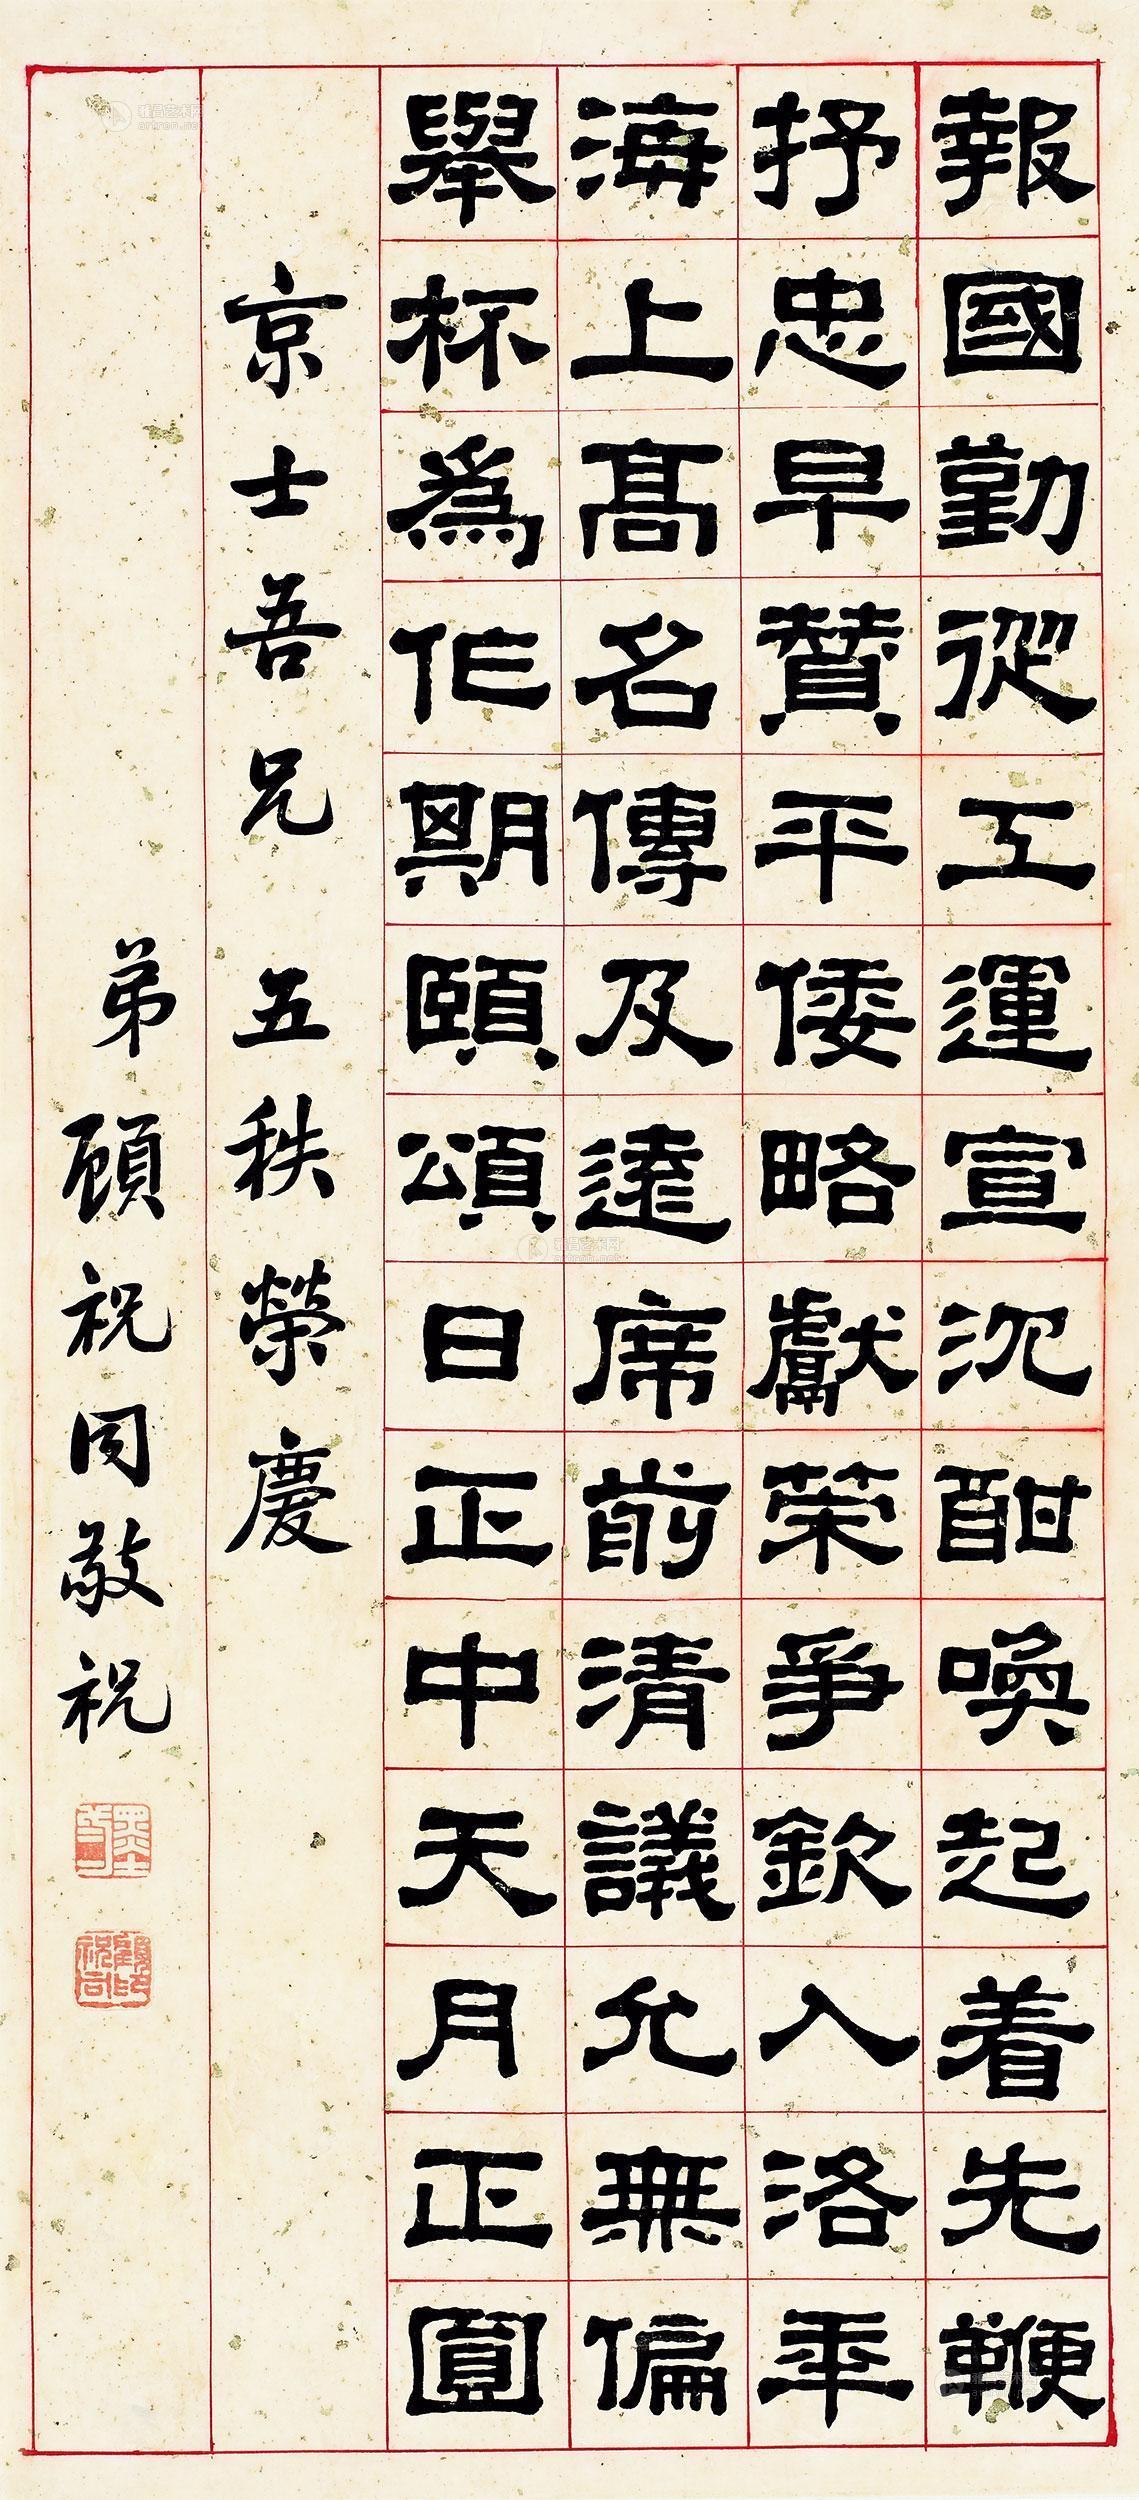 報國勤從工運宣沉酣喚起着先鞭
抒忠早贊平倭略獻策爭欽入洛年
海上高名傳及遠席前清議允無偏
舉杯為作期頤頌日正中天月正圓
京士吾兄 五秩榮慶
弟顧祝同敬祝
墨三
顧祝同印
雅昌艺术网
artron.net